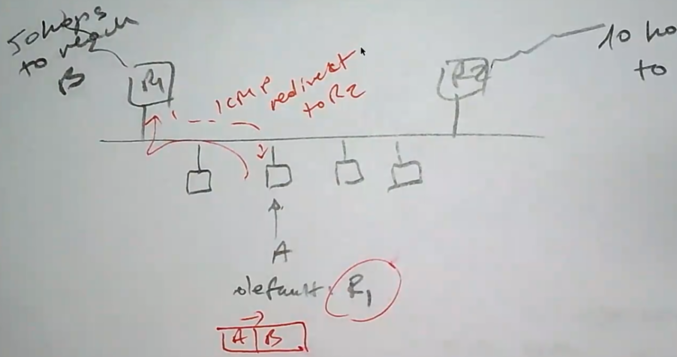 50 hops
to reach
B
R1
ICMP
redirect
to R2
R2
10 ho
to
A
default: R1
A B